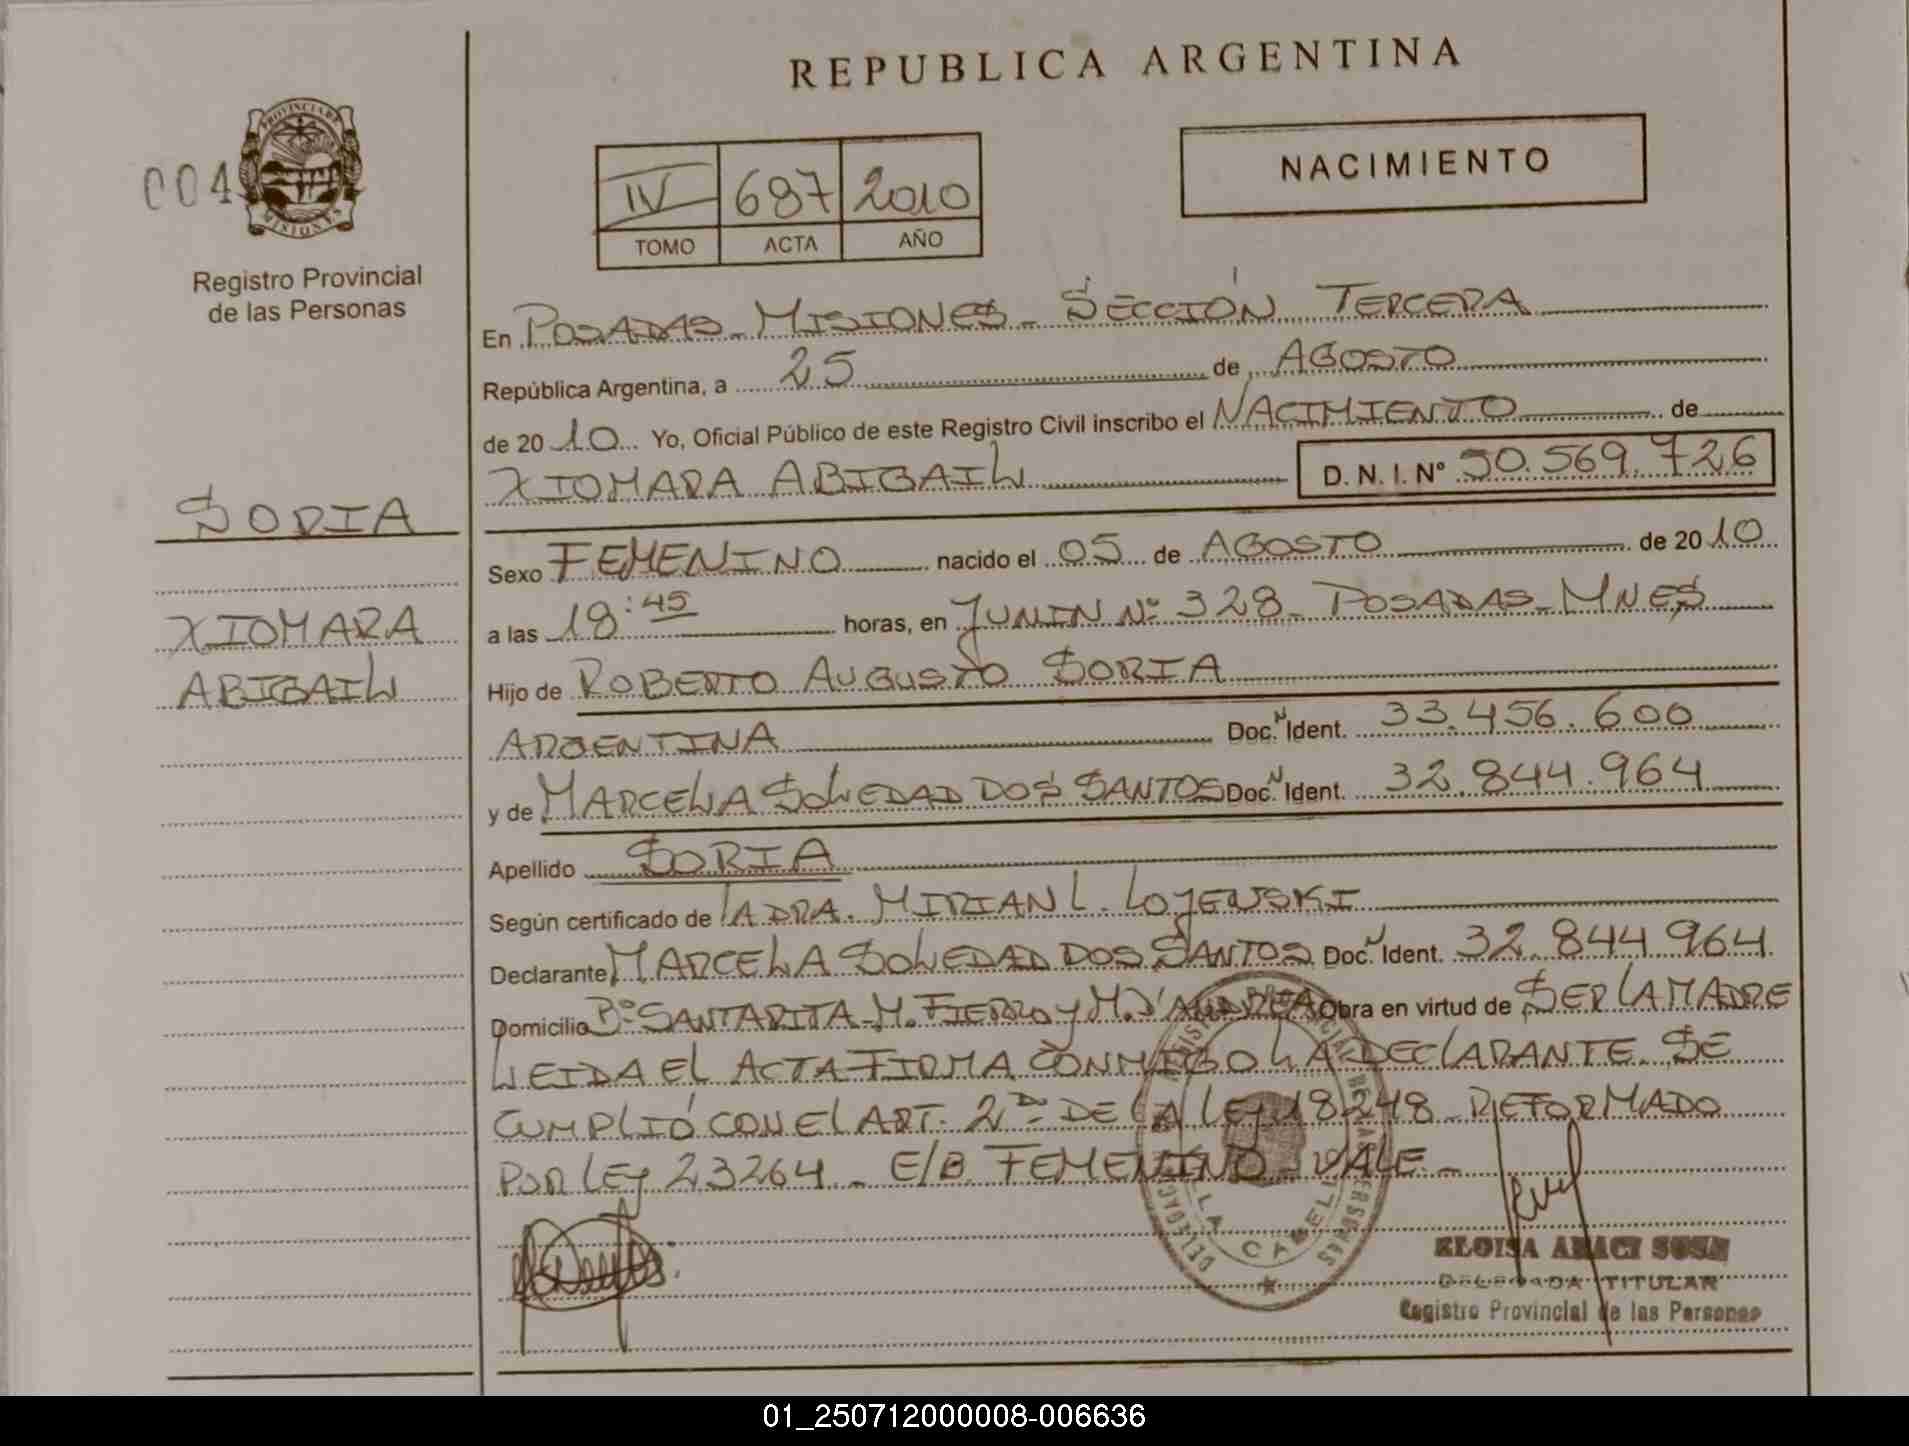 REPUBLICA ARGENTINA
NACIMIENTO
004
PROVINCIA DE MISIONES
Registro Provincial
de las Personas
IV 687 2010
TOMO ACTA AÑO
En POSADAS - MISIONES - SECCIÓN TERCERA
República Argentina, a 25 de AGOSTO
de 2010 Yo, Oficial Público de este Registro Civil inscribo el NACIMIENTO de
XIOMARA ABIGAIL D. N. I. Nº 50.569.726
SORIA
XIOMARA
ABIGAIL
Sexo FEMENINO nacido el 05 de AGOSTO de 2010
a las 18:45 horas, en JUNIN Nº 328 - POSADAS - MNES
Hijo de ROBERTO AUGUSTO SORIA
ARGENTINA Doc. N Ident. 33.456.600
y de MARCELA SOLEDAD DOS SANTOS Doc. N Ident. 32.844.964
Apellido SORIA
Según certificado de LA DRA. MIRIAN L. LOJEWSKI
Declarante MARCELA SOLEDAD DOS SANTOS Doc. N Ident. 32.844.964
Domicilio Bº SANTA RITA - M. FIERRO y M. Obra en virtud de SER LA MADRE
LEIDA EL ACTA FIRMA CONMIGO LA DECLARANTE. SE
CUMPLIÓ CON EL ART. 2do DE LA LEY 18248 REFORMADO
POR LEY 23264 - E/B. FEMENINO - VALE -
REGISTRO PROVINCIAL DE LAS PERSONAS
VILLA CABELLO
ELOISA ARACI SOSA
DELEGADA TITULAR
Registro Provincial de las Personas
01_250712000008-006636